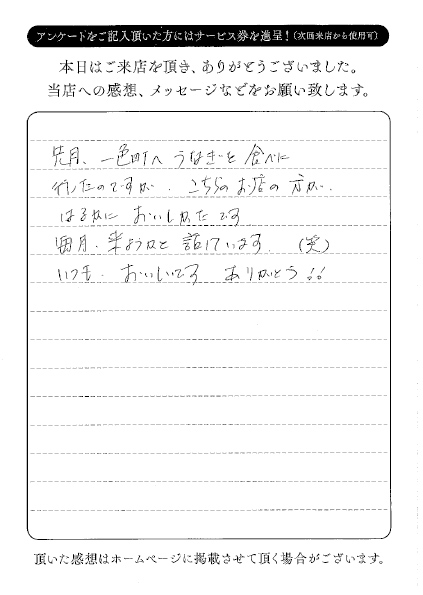 アンケートをご記入頂いた方にはサービス券を進呈！(次回来店から使用可)
本日はご来店を頂き、ありがとうございました。
当店への感想、メッセージなどをお願い致します。
先月、一色町へうなぎを食べに
行したのですが、こちらのお店の方が、
はるかにおいしかたです
毎月、来ようかと話しています。（笑）
いつも、おいしいです ありがとう!!
頂いた感想はホームページに掲載させて頂く場合がございます。